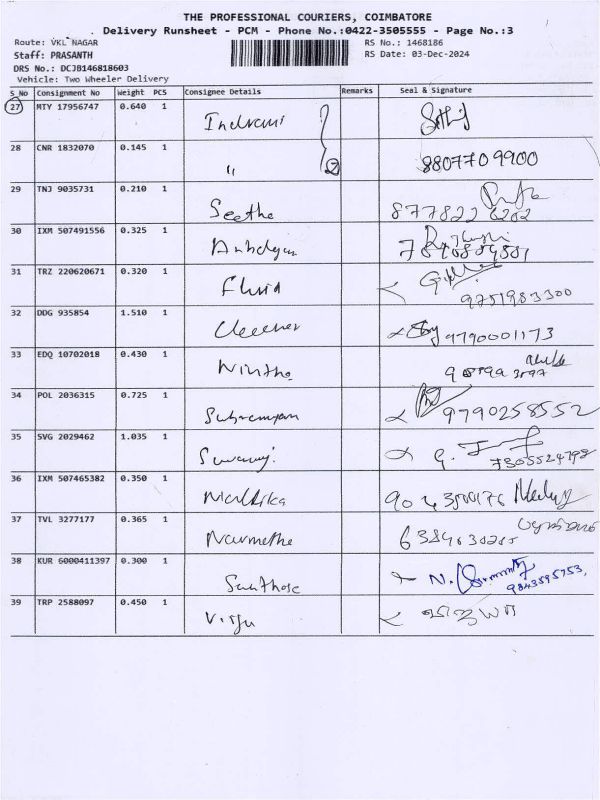 THE PROFESSIONAL COURIERS, COIMBATORE
Delivery Runsheet - PCM - Phone No.:0422-3505555 - Page No.:3
Route: VKL NAGAR
RS No.: 1468186
Staff: PRASANTH
RS Date: 03-Dec-2024
DRS No.: DCJB146818603
Vehicle: Two Wheeler Delivery
S_No Consignment No Weight PCS Consignee Details Remarks Seal & Signature
27 MTY 17956747 0.640 1 Indrani
28 CNR 1832070 0.145 1 " 2 8807709900
29 TNJ 9035731 0.210 1 Seetha
8778226202
30 IXM 507491556 0.325 1
31 TRZ 220620671 0.320 1 Fluid
9751983300
32 DDG 935854 1.510 1 9790001173
33 EDQ 10702018 0.430 1
34 POL 2036315 0.725 1 9790258552
35 SVG 2029462 1.035 1 Swamy.
7305524798
36 IXM 507465382 0.350 1 Mallika
37 TVL 3277177 0.365 1
38 KUR 6000411397 0.300 1 Santhose
9843595753,
39 TRP 2588097 0.450 1